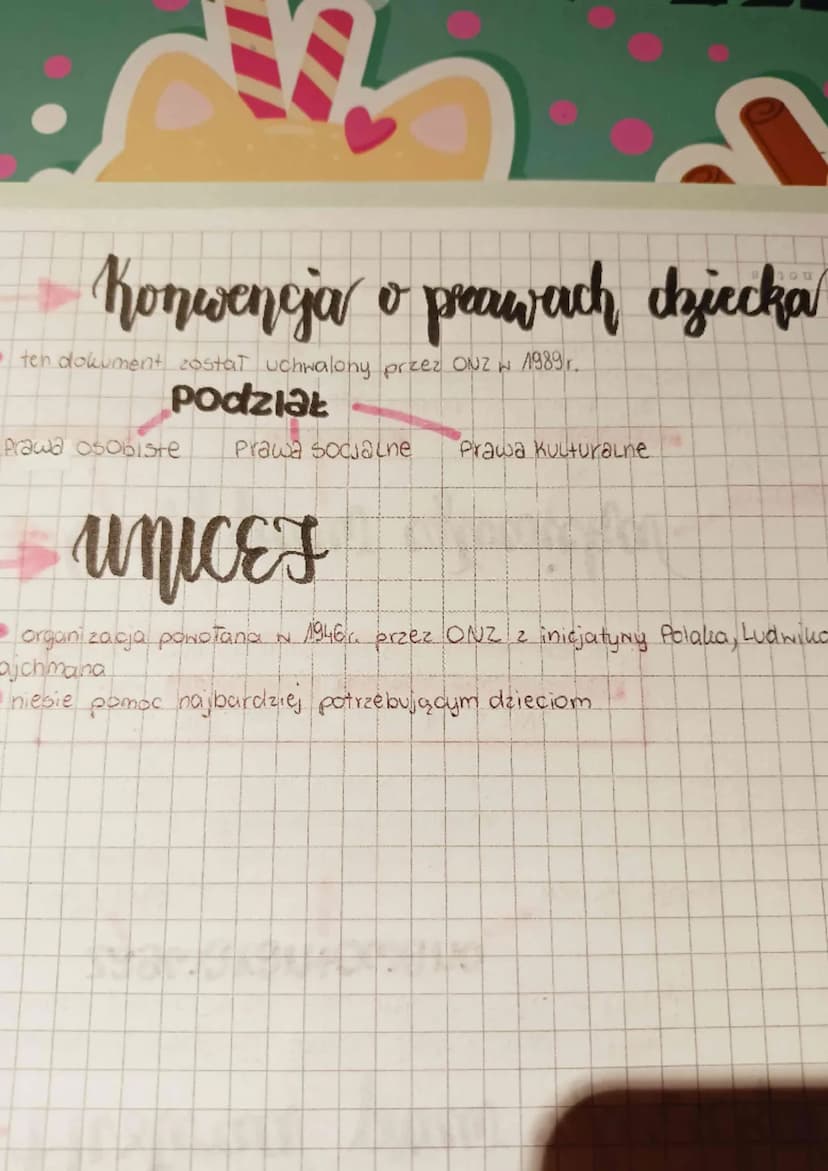 Konwencja o prawach dziecka
ten dokument został uchwalony przez ONZ w 1989r.
Podział
Prawa osobiste Prawa socjalne Prawa kulturalne
UNICEF
organizacja powołana w 1946r. przez ONZ z inicjatywy Polaka, Ludwika
ajchmana
niesie pomoc najbardziej potrzebującym dzieciom